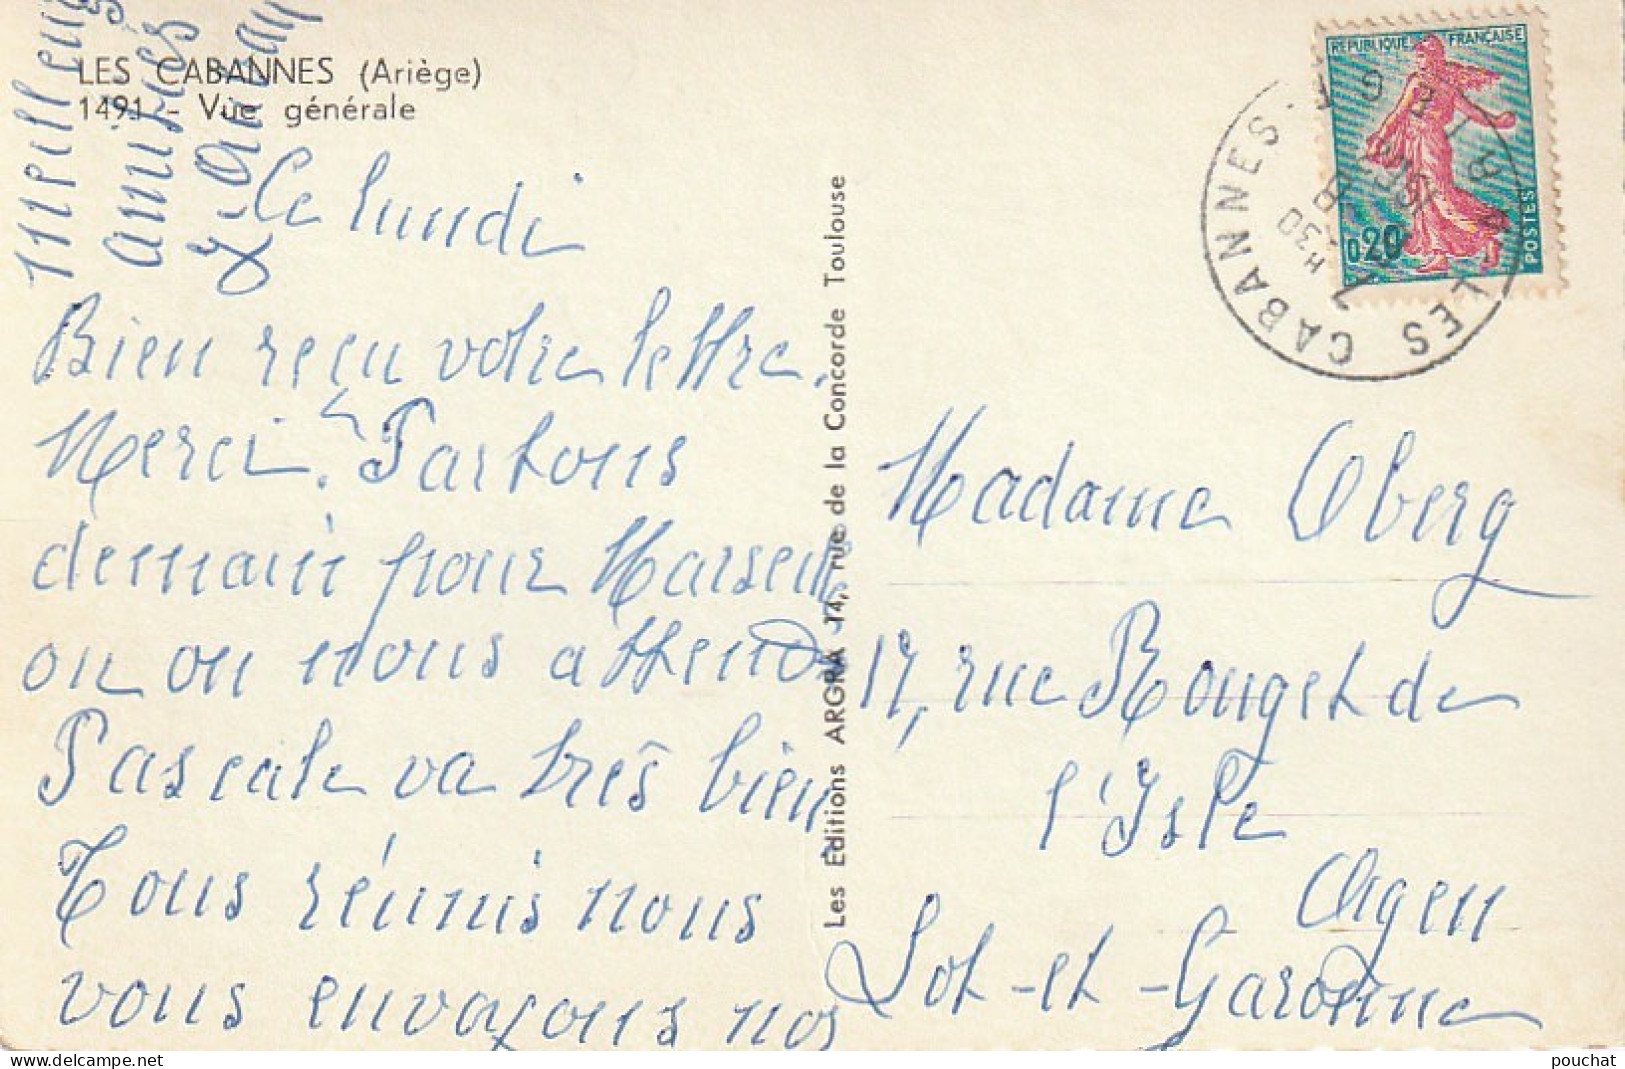 LES CABANNES (Ariège)
1491 - Vue générale
Ce lundi
Bien reçu votre lettre.
Merci. Partons
demain pour Marseille
ou on nous attend.
Pascale va très bien
Tous réunis nous
vous envoyons nos
meilleures
amitiés
Les Editions ARGRA 14, rue de la Concorde Toulouse
REPUBLIQUE FRANÇAISE
0,20
POSTES
LES CABANNES
Madame Oberg
17, rue Rouget de
l'Isle
Agen
Lot-et-Garonne
pouchat